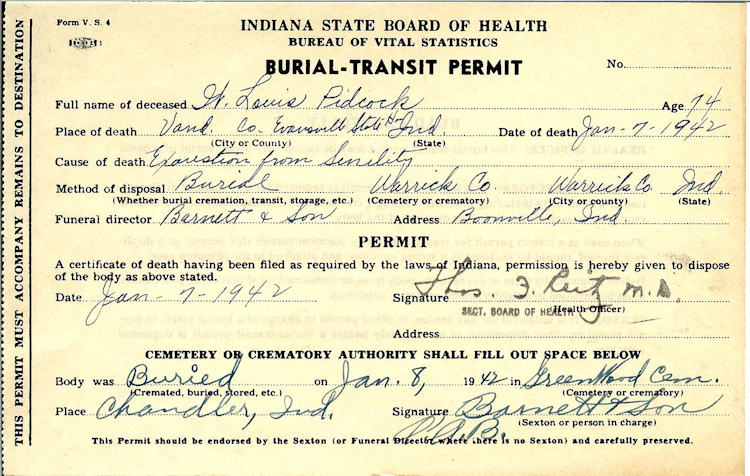 Form V. S. 4
INDIANA STATE BOARD OF HEALTH
BUREAU OF VITAL STATISTICS
BURIAL-TRANSIT PERMIT
No.
Full name of deceased W. Louis Pidcock Age 74
Place of death Vand. Co. Evansville State H. Ind. Date of death Jan-7-1942
(City or County) (State)
Cause of death Exaustion from Senility
Method of disposal Burial Warrick Co. Warrick Co Ind.
(Whether burial cremation, transit, storage, etc.) (Cemetery or crematory) (City or county) (State)
Funeral director Barnett & Son Address Boonville, Ind.
PERMIT
A certificate of death having been filed as required by the laws of Indiana, permission is hereby given to dispose
of the body as above stated.
Date Jan-7-1942 Signature Thos. J. Reitz M.D.
SECT. BOARD OF HEALTH (Health Officer)
Address
CEMETERY OR CREMATORY AUTHORITY SHALL FILL OUT SPACE BELOW
Body was Buried on Jan. 8, 1942 in GreenWood Cem.
(Cremated, buried, stored, etc.) (Cemetery or crematory)
Place Chandler, Ind. Signature Barnett & Son
(Sexton or person in charge)
C.A.B.
This Permit should be endorsed by the Sexton (or Funeral Director where there is no Sexton) and carefully preserved.
THIS PERMIT MUST ACCOMPANY REMAINS TO DESTINATION